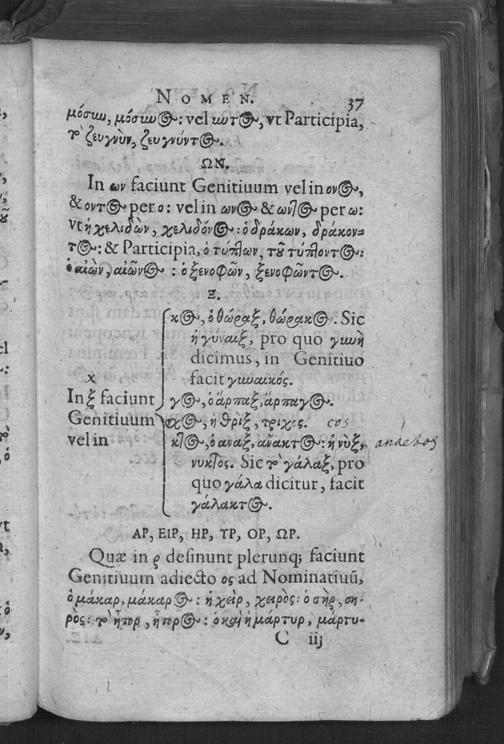 NOMEN. 37
μόσιω, μόσιω(Ο)ς: vel ιωτ(Ο)ς, vt Participia,
τὸ ζευγνὺν, ζευγνύντος.
ΩΝ.
In ων faciunt Genitiuum vel in ονος,
& οντος per ο: vel in ωνος & ωντος per ω:
vt ἡ χελιδὼν, χελιδόνος: ὁ δράκων, δράκον-
τος: & Participia, ὁ τύπτων, τοῦ τύπτοντος:
ὁ αἰὼν, αἰῶνος: ὁ ξενοφῶν, ξενοφῶντος.
Ξ.
κος, ὁ θώραξ, θώρακος. Sic
ἡ γύναιξ, pro quo γυνὴ
dicimus, in Genitiuo
facit γυναικός.
In ξ faciunt
Genitiuum
vel in
γος, ὁ ἅρπαξ, ἅρπαγος.
χος, ἡ θρὶξ, τριχος. cos
κτος, ὁ αναξ, ἄνακτος: ἡ νὺξ,
νυκτος. Sic τὸ γάλαξ, pro
quo γάλα dicitur, facit
γάλακτος.
ΑΡ, ΕΙΡ, ΗΡ, ΥΡ, ΟΡ, ΩΡ.
Quæ in ρ desinunt plerunq; faciunt
Genitiuum adiecto ος ad Nominatiuū,
ὁ μάκαρ, μάκαρος: ἡ χεὶρ, χειρὸς: ὁ σὴρ, ση-
ρὸς: τὸ ἦτορ, ἦτορος: ὁ καὶ ἡ μάρτυρ, μάρτυ-
C iij